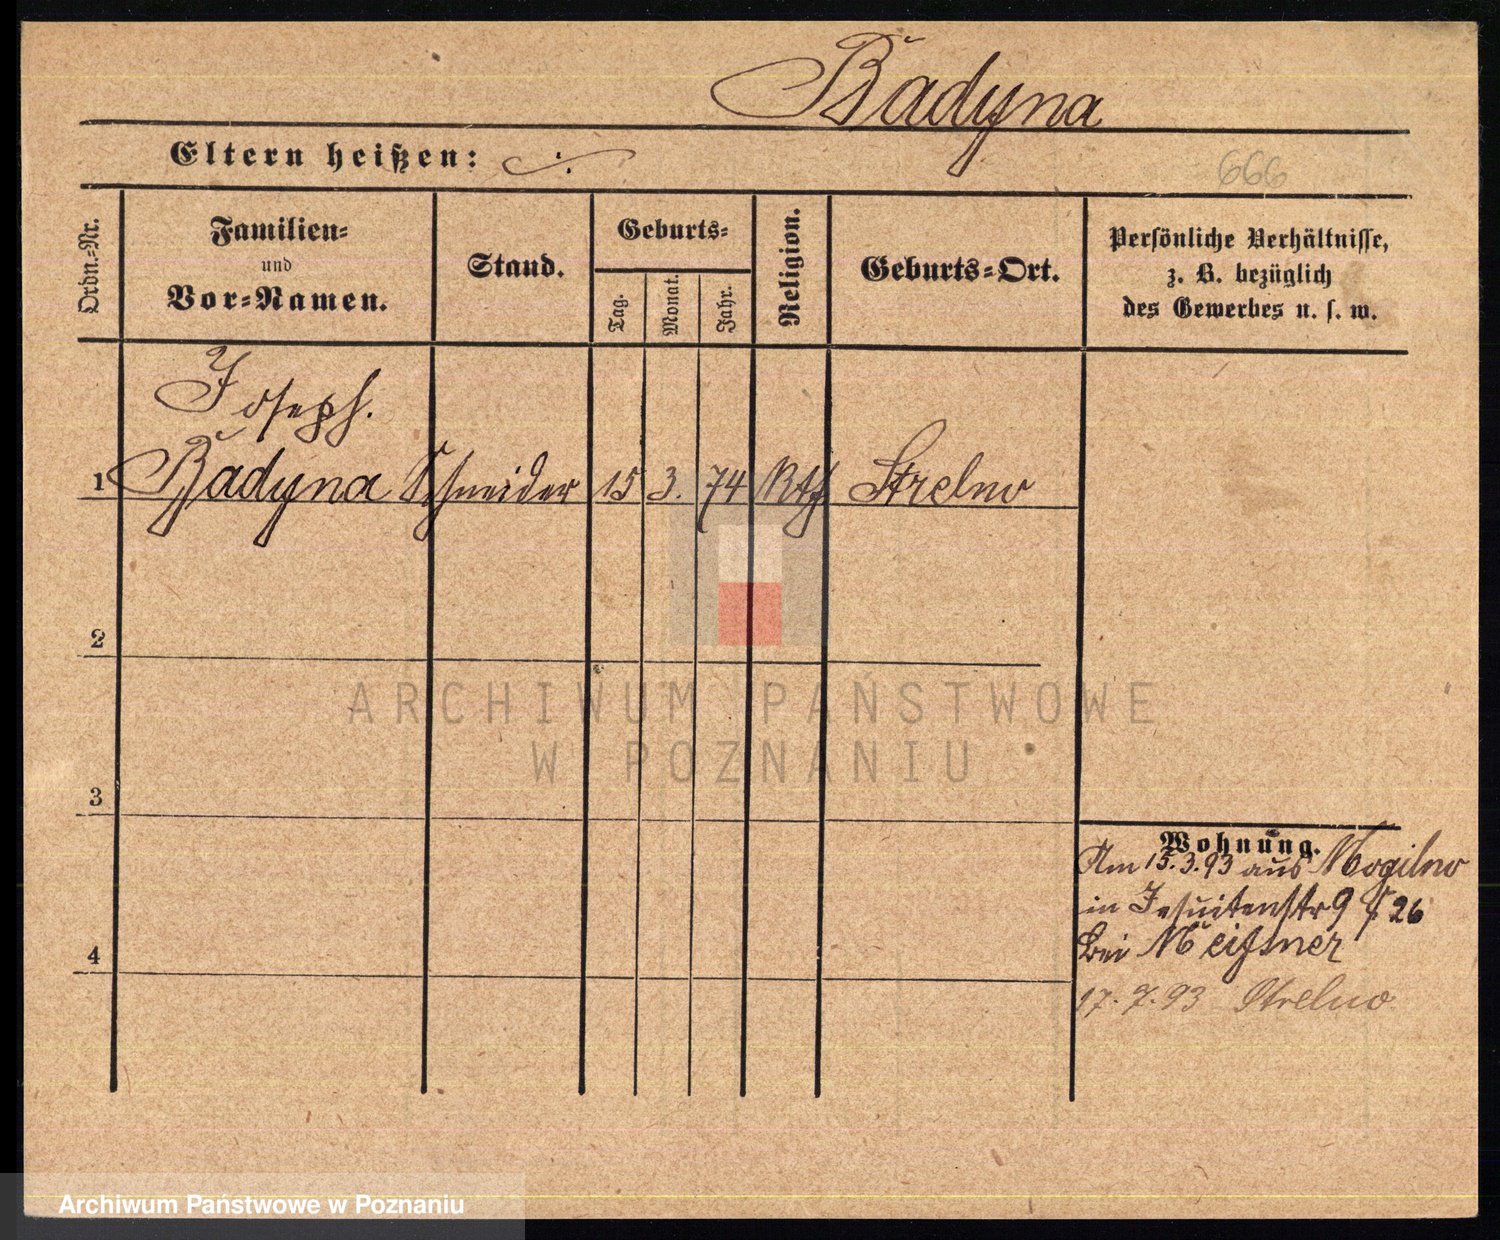 Badyna
Eltern heißen:
666
Ordn.-Nr.
Familien-
und
Vor-Namen.
Stand.
Geburts-
Tag.
Monat.
Jahr.
Religion.
Geburts-Ort.
Persönliche Verhältnisse,
z. B. bezüglich
des Gewerbes u. s. w.
Joseph.
1 Badyna Schneider 15 3. 74 Kth Strelno
2
3
4
ARCHIWUM PAŃSTWOWE
W POZNANIU
Wohnung.
Am 15.3.93 aus Mogilno
in Jesuitenstr 9 26
bei Meißner
17.7.93 Strelno
Archiwum Państwowe w Poznaniu